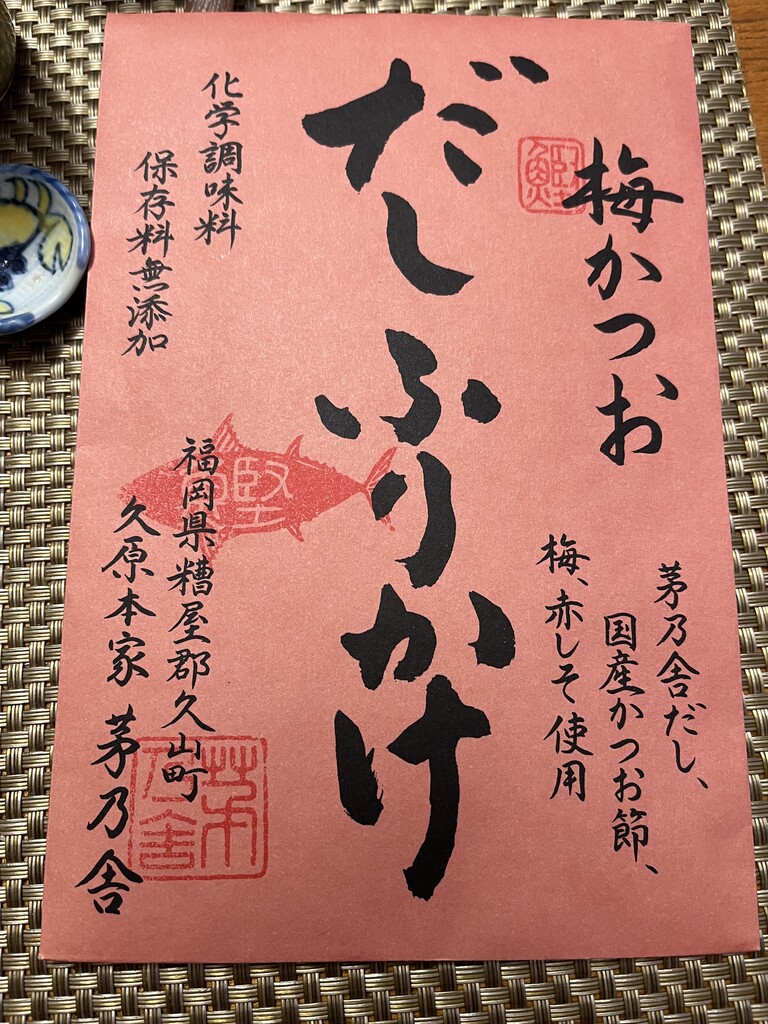 梅かつお
鰹
茅乃舎だし、
国産かつお節、
梅、赤しそ使用
だしふりかけ
化学調味料
保存料無添加
鰹
福岡県糟屋郡久山町
久原本家 茅乃舎
茅乃舎